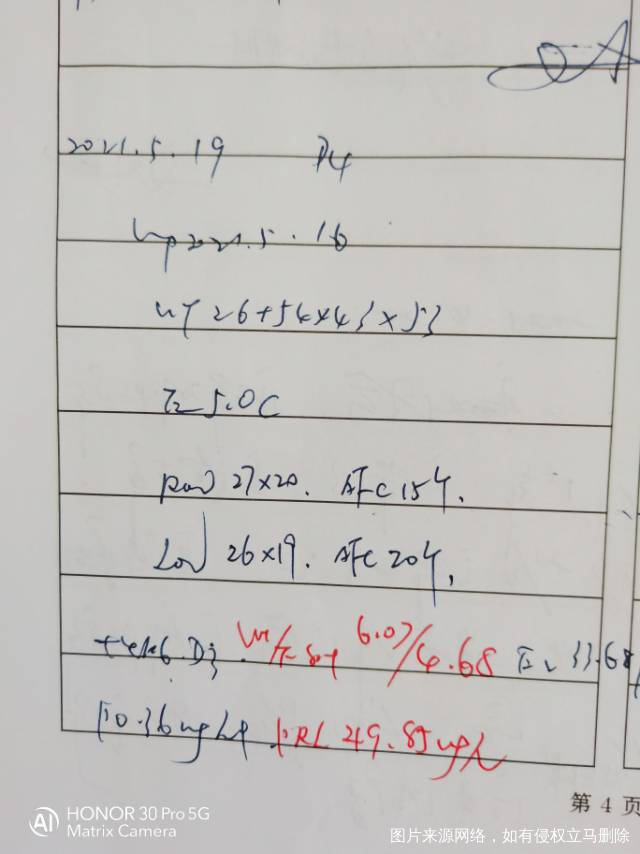 2021.5.19 D4
Lmp 2021.5.16
UT 26+54×43×53
Em 5.0 C
Rov 27×20. AFC 15个.
Lov 26×19. AFC 20个.
D3 LH/FSH 6.07/4.68 E2 33.68
P 0.36 ng/ml PRL 49.85 ng/
第 4 页
HONOR 30 Pro 5G
Matrix Camera
图片来源网络，如有侵权立马删除